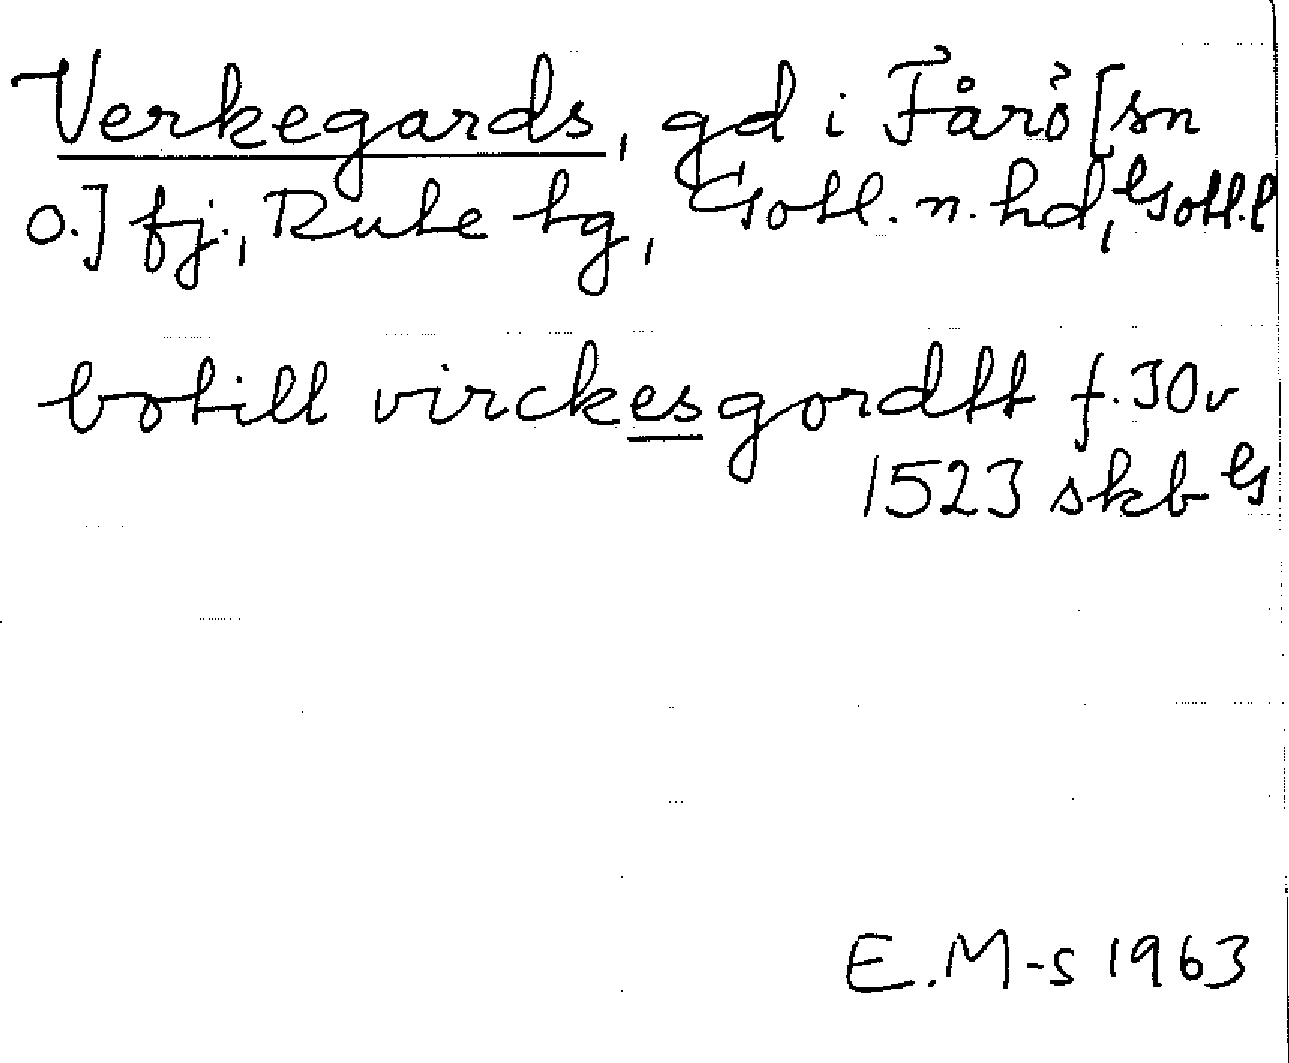 Verkegards, gd i Fårö [sn
o.] fj., Rute tg, Gotl. n. hd, Gotl. l
botill virckesgordtt f. 30v
1523 skb G
E.M-s 1963